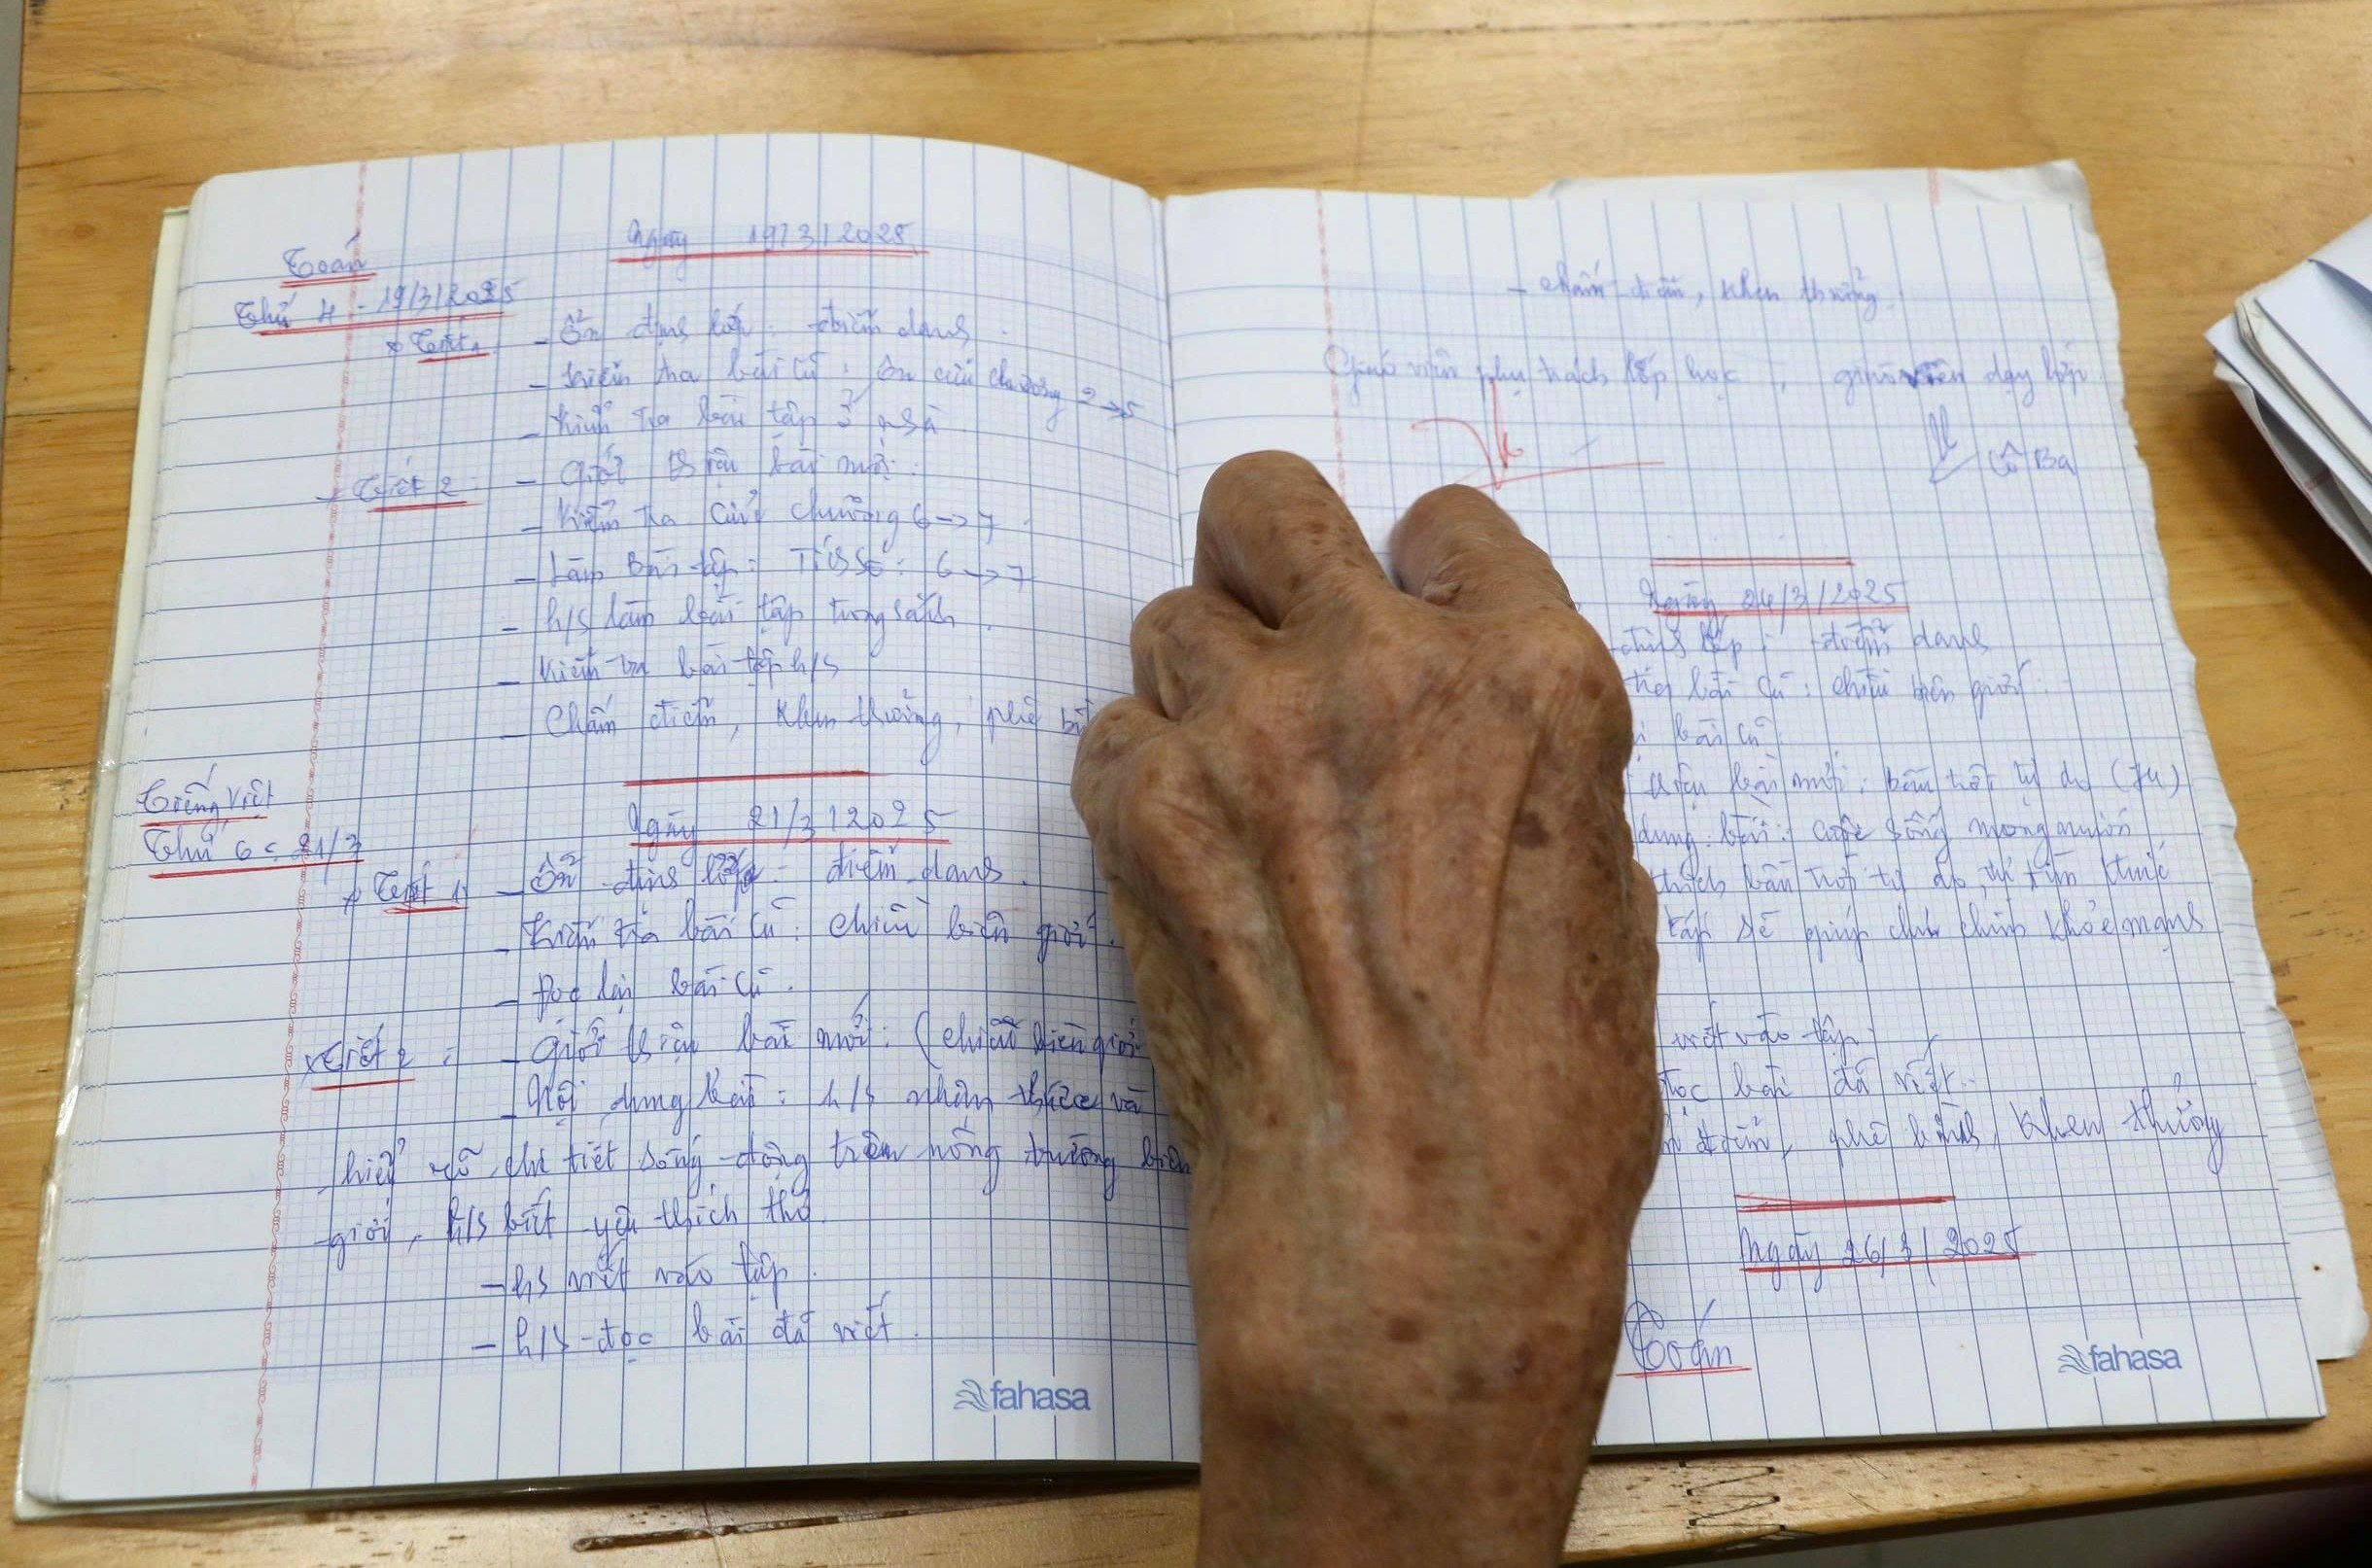 Toán
Ngày 19/3/2025
Thứ 4 - 19/3/2025
* Tiết 1 - Ổn định lớp: điểm danh.
- Kiểm tra bài cũ: ôn cửu chương 2 → 5
- Kiểm tra bài tập ở nhà
- Tiết 2: - Giới thiệu bài mới:
- Kiểm tra cửu chương 6 → 7.
- Làm Bài tập: 6 → 7
- h/s làm bài tập trong sách.
- Kiểm tra bài tập h/s
- Chấm điểm, khen thưởng, phê
Tiếng Việt
Ngày 21/3/2025
Thứ 6: 21/3
* Tiết 1: - Ổn định lớp: điểm danh.
- Kiểm tra bài cũ: chiều biên giới.
- Đọc lại bài cũ.
* Tiết 2: - Giới thiệu bài mới: (chiều biên giới
- Nội dung bài: h/s nhận thức và
hiểu rõ chi tiết sống động trên nông trường biên
giới, h/s biết yêu thích thơ.
- hs viết vào tập.
- h/s đọc bài đã viết.
fahasa
- chấm điểm, khen thưởng.
Giáo viên phụ trách lớp học, giáo viên dạy lớp.
Lê Ba
Ngày 24/3/2025
định lớp: điểm danh
bài cũ: chiều biên giới.
bài cũ
thiệu bài mới: bầu trời tự do (74)
dung bài: cuộc sống mong muốn
thích bầu trời tự do, tri thức
tập sẽ giúp chúng khỏe mạnh
viết vào tập
đọc bài đã viết.
điểm, phê bình, khen thưởng
Ngày 26/3/2025
Toán
fahasa